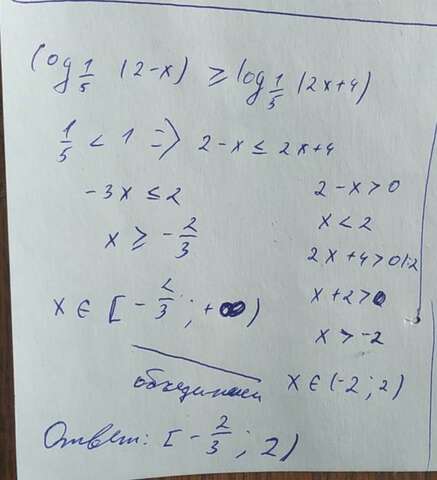 log 1/5 (2-x) ≥ log 1/5 (2x+4)
1/5 < 1 => 2-x ≤ 2x+4
-3x ≤ 2
x ≥ -2/3
x ∈ [-2/3; +∞)
2-x>0
x<2
2x+4>0 |:2
x+2>0
x>-2
объединяем x ∈ (-2; 2)
Ответ: [-2/3; 2)